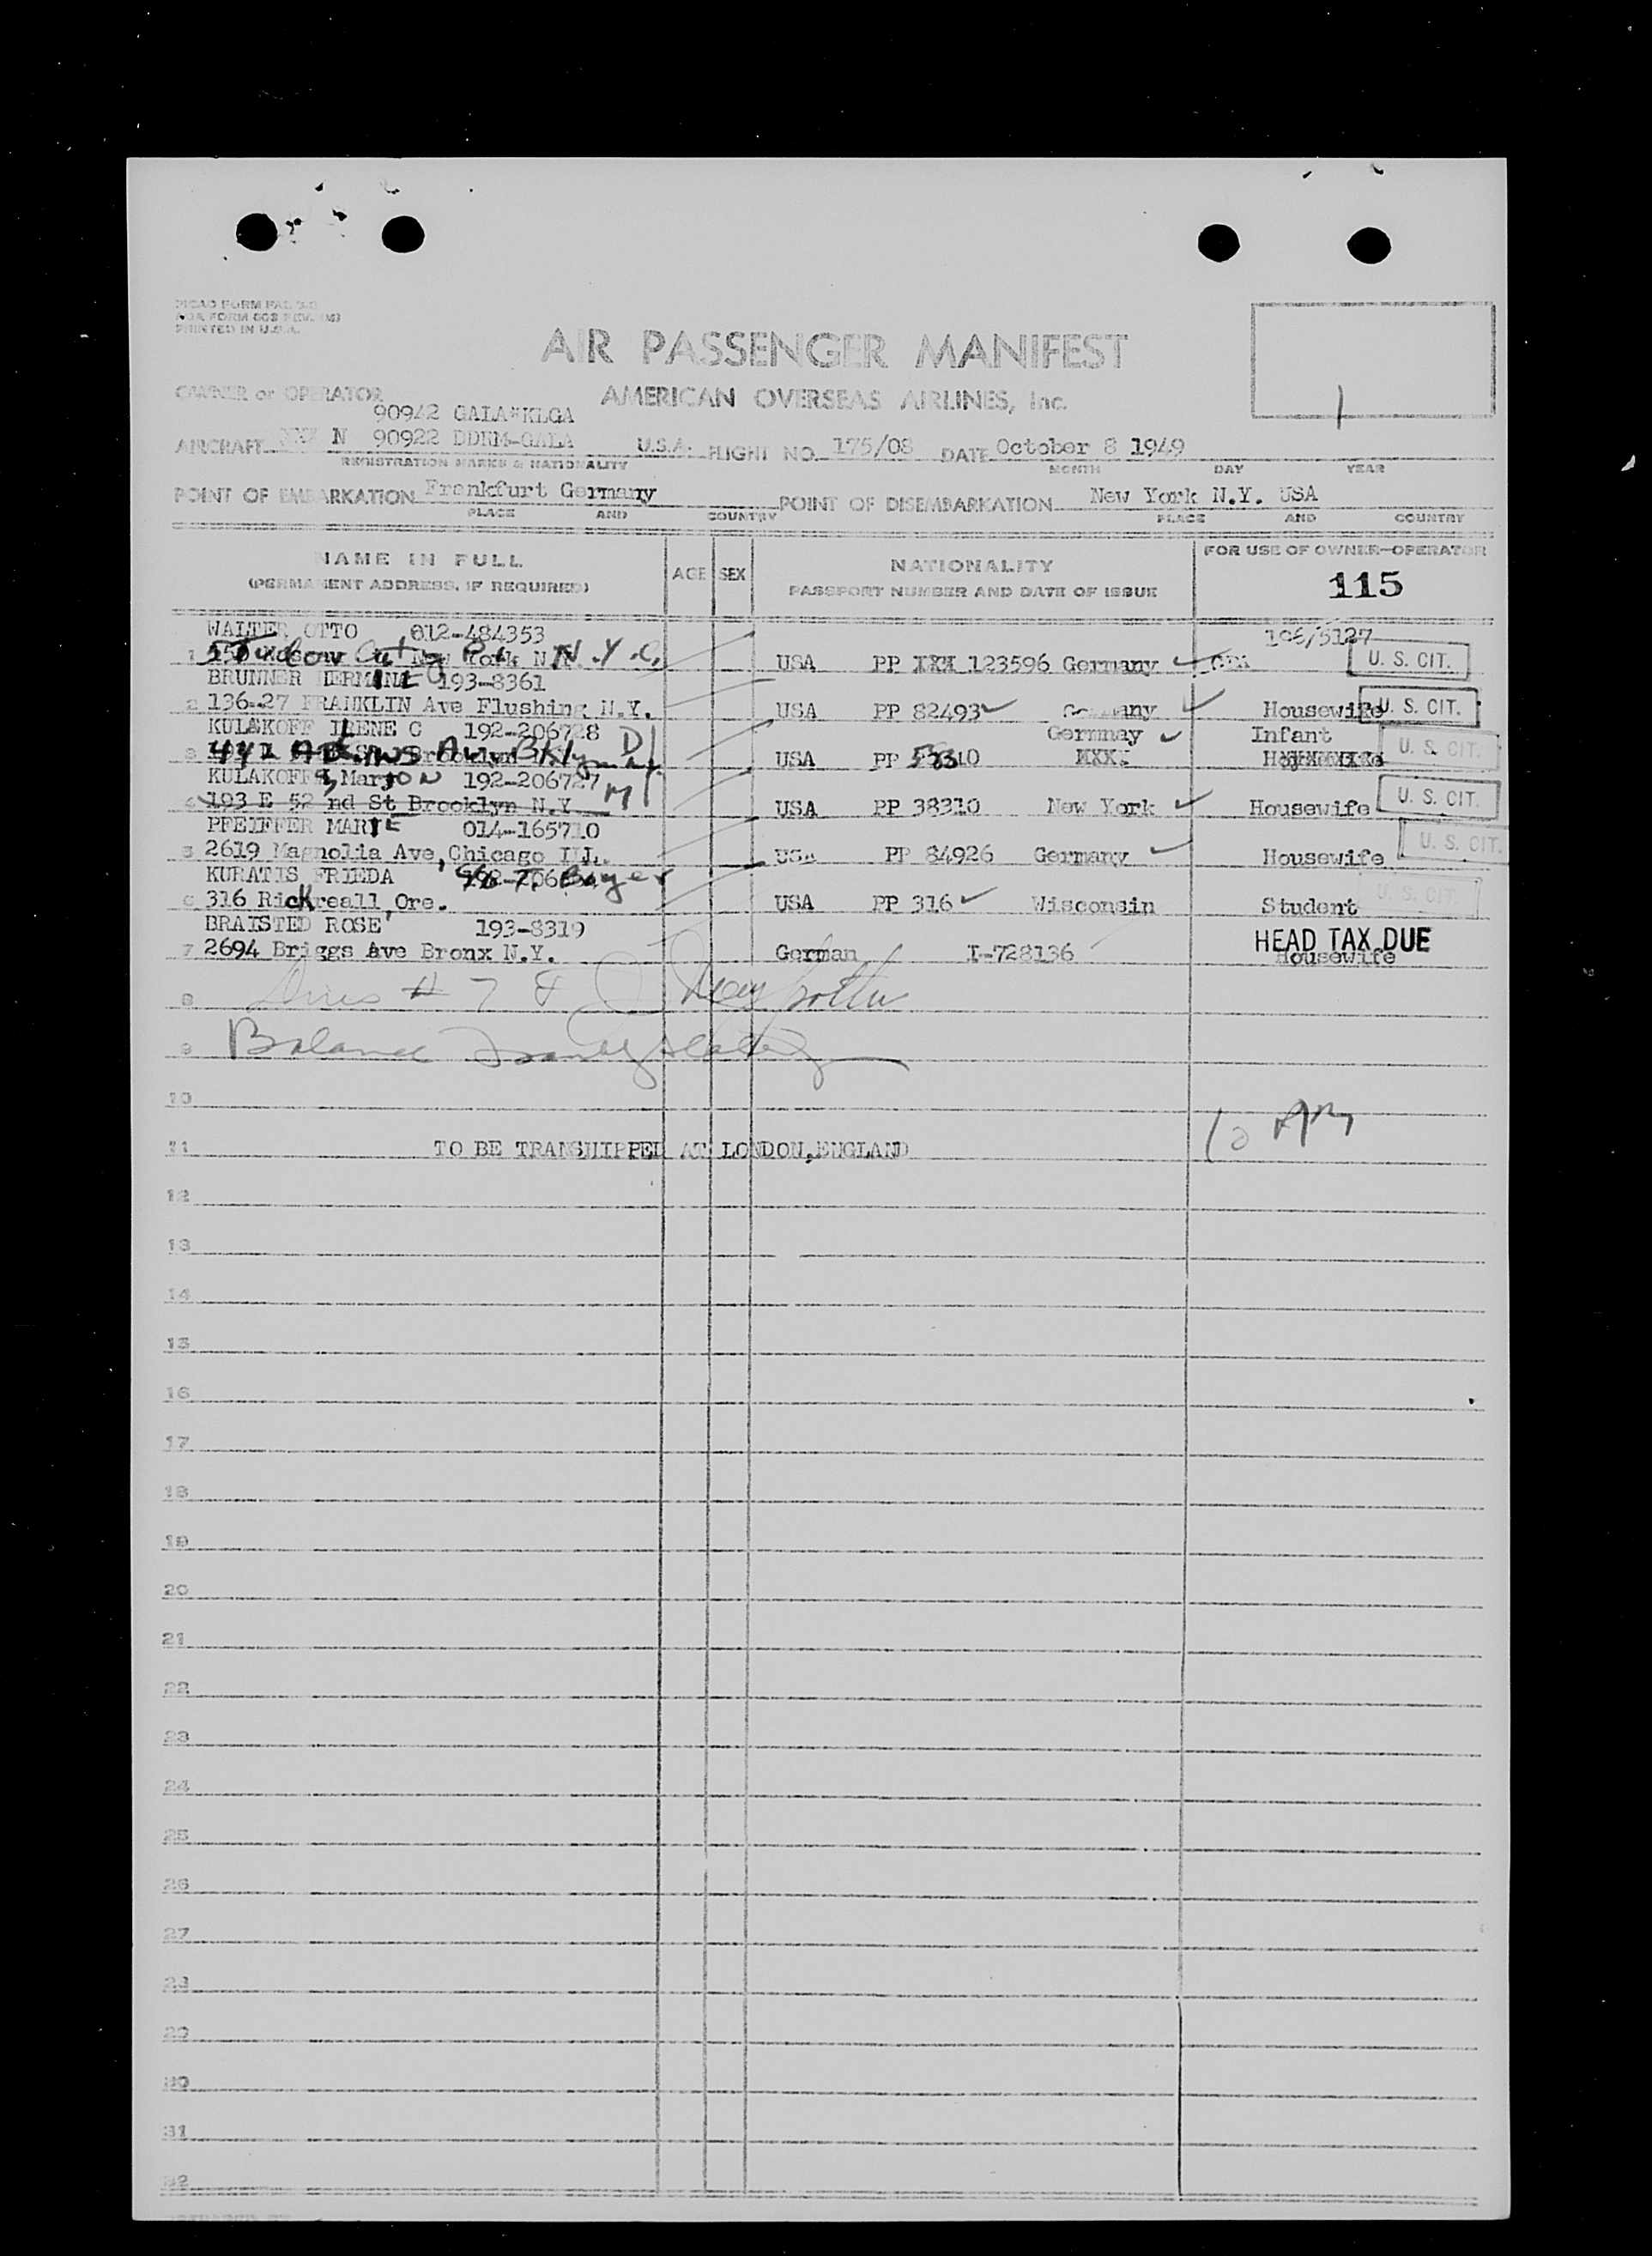 PRINTED IN U.S.A.
AIR PASSENGER MANIFEST
OWNER or OPERATOR AMERICAN OVERSEAS AIRLINES, Inc.
90942 GALA*KLGA
AIRCRAFT N 90922 DDRM-GALA U.S.A. FLIGHT NO. 175/08 DATE October 8 1949
REGISTRATION MARKS & NATIONALITY MONTH DAY YEAR
POINT OF EMBARKATION Frankfurt Germany POINT OF DISEMBARKATION New York N.Y. USA
PLACE AND COUNTRY PLACE AND COUNTRY
NAME IN FULL AGE SEX NATIONALITY FOR USE OF OWNER-OPERATOR
(PERMANENT ADDRESS, IF REQUIRED) PASSPORT NUMBER AND DATE OF ISSUE 115
WALTER OTTO 012-484353 106/5127
1 5 Tudor City Pl. New York N.Y.C. USA PP XXX 123596 Germany U. S. CIT.
BRUNNER HERMINE 193-8361
2 136-27 FRANKLIN Ave Flushing N.Y. USA PP 82493 Germany Housewife U. S. CIT.
KULAKOFF IRENE C 192-206728 D Germnay Infant
3 441 Ave Bklyn USA PP XXX. U. S. CIT.
KULAKOFF, Marion 192-206727 M
4 193 E 52 nd St Brooklyn N.Y. USA PP 38310 New York Housewife U. S. CIT.
PFEIFFER MARIE 014-165710
5 2619 Magnolia Ave, Chicago Ill. USA PP 84926 Germany Housewife U. S. CIT.
KURATIS FRIEDA Bayer
6 316 Rickreall, Ore. USA PP 316 Wisconsin Student U. S. CIT.
BRAISTED ROSE 193-8319 HEAD TAX DUE
7 2694 Briggs Ave Bronx N.Y. German I-728136 Housewife
8 # 7
9 Balance
10
11 TO BE TRANSHIPPED AT LONDON, ENGLAND 10
12
13
14
15
16
17
18
19
20
21
22
23
24
25
26
27
28
29
30
31
32